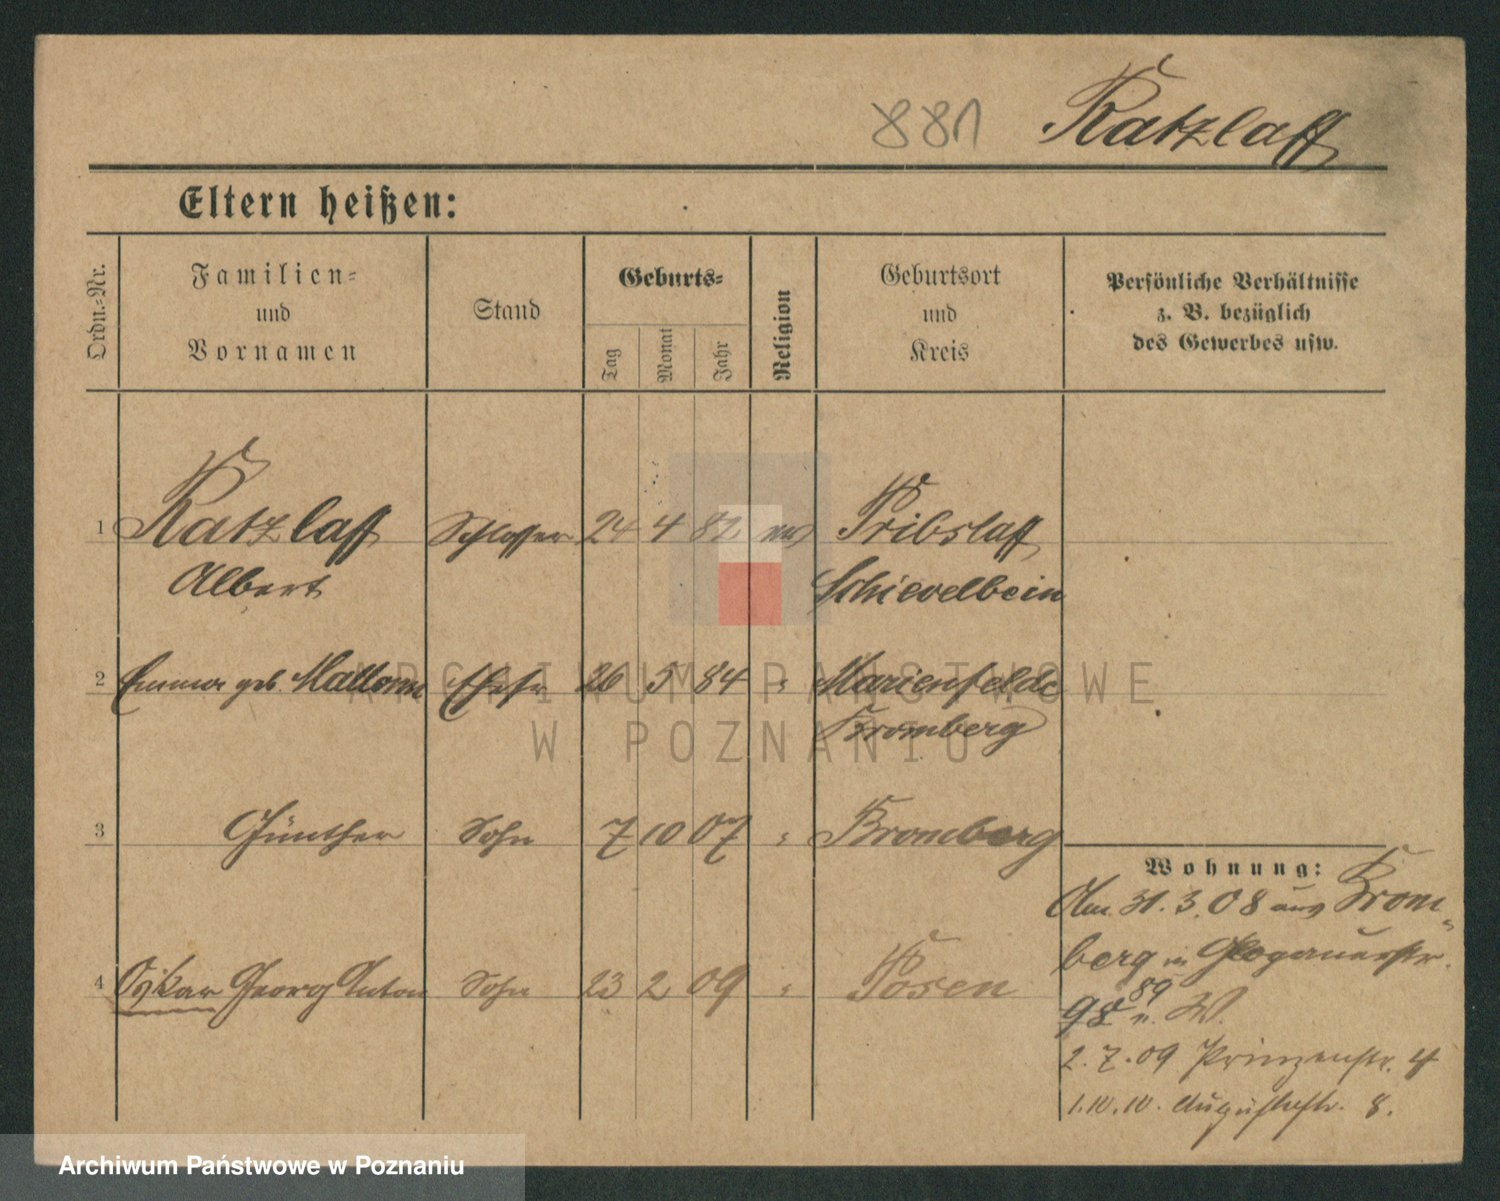 881 Ratzlaff
Eltern heißen:
Ordn.-Nr.
Familien-
und
Vornamen
Stand
Geburts-
Tag
Monat
Jahr
Religion
Geburtsort
und
Kreis
Persönliche Verhältnisse
z. B. bezüglich
des Gewerbes usw.
1 Ratzlaff Schlosser 24 4 82 Pribslaff
Albert Schievelbein
2 Emma geb. Ehefr 26 5 84 " Marienfelde
Bromberg
3 Günther Sohn 7 10 07 " Bromberg
Wohnung:
Am 31.3.08 aus Brom-
berg n Glogauerstr.
89
98 n. W.
4 Oskar Georg Anton Sohn 23 2 09 " Posen
2.7.09 Prinzenstr. 4
1.10.10. Augustastr. 8.
ARCHIWUM PAŃSTWOWE
W POZNANIU
Archiwum Państwowe w Poznaniu